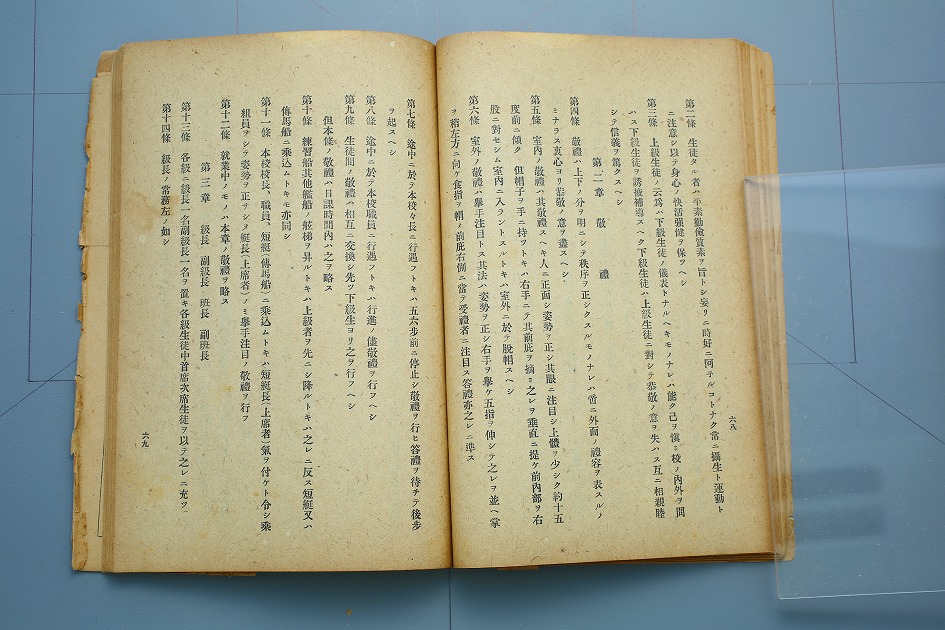 第二條　生徒タル者ハ平素勤儉質素ヲ旨トシ妄リニ時好ニ阿子ルコトナク常ニ攝生ト運動ト
ニ注意シ以テ身心ノ快活強健ヲ保ツヘシ
第三條　上級生徒ノ云爲ハ下級生徒ノ儀表トナルヘキモノナレハ能ク己ヲ愼ミ校ノ內外ヲ問
ハス下級生徒ヲ誘掖補導スヘク下級生徒ハ上級生徒ニ對シテ恭敬ノ意ヲ失ハス互ニ相親睦
シテ信義ヲ篤クスヘシ
第二章　敬禮
第四條　敬禮ハ上下ノ分ヲ明ニシテ秩序ヲ正シクスルモノナレハ啻ニ外面ノ禮容ヲ表スルノ
ミナラス衷心ヨリ恭敬ノ意ヲ盡スヘシ
第五條　室內ノ敬禮ハ其敬禮スヘキ人ニ正面シ姿勢ヲ正シ其眼ニ注目シ上體ヲ少シク約十五
度前ニ傾ク　但帽子ヲ手ニ持ツトキハ右手ニテ其前庇ヲ摘ミ之レヲ垂直ニ提ケ前內部ヲ右
股ニ對セシム室內ニ入ラントスルトキハ室外ニ於テ脫帽スヘシ
第六條　室外ノ敬禮ハ擧手注目トス其法ハ姿勢ヲ正シ右手ヲ擧ケ五指ヲ伸シテ之レヲ並ヘ掌
ヲ稍左方ニ向ケ食指ヲ帽ノ前庇右側ニ當テ受禮者ニ注目ス答禮亦之レニ準ス
六八
第七條　途中ニ於テ本校々長ニ行遇フトキハ五六步前ニ停止シ敬禮ヲ行ヒ答禮ヲ待チテ後步
ヲ起スヘシ
第八條　途中ニ於テ本校職員ニ行遇フトキハ行進ノ儘敬禮ヲ行フヘシ
第九條　生徒間ノ敬禮ハ相互ニ交換シ先ツ下級生ヨリ之ヲ行フヘシ
但本條ノ敬禮ハ日課時間內ハ之ヲ略ス
第十條　練習船其他艦船ノ舷梯ヲ昇ルトキハ上級者ヲ先ニシ降ルトキハ之レニ反ス短艇又ハ
傳馬船ニ乘込ムトキモ亦同シ
第十一條　本校校長、職員、短艇、傳馬船ニ乘込ムトキハ短艇長(上席者)氣ヲ付ケト令シ乘
組員ヲシテ姿勢ヲ正サシメ艇長(上席者)ノミ擧手注目ノ敬禮ヲ行フ
第十二條　就業中ノモノハ本章ノ敬禮ヲ略ス
第三章　級長　副級長　班長　副班長
第十三條　各級ニ級長一名副級長一名ヲ置キ各級生徒中首席次席生徒ヲ以テ之レニ充ツ
第十四條　級長ノ常務左ノ如シ
六九